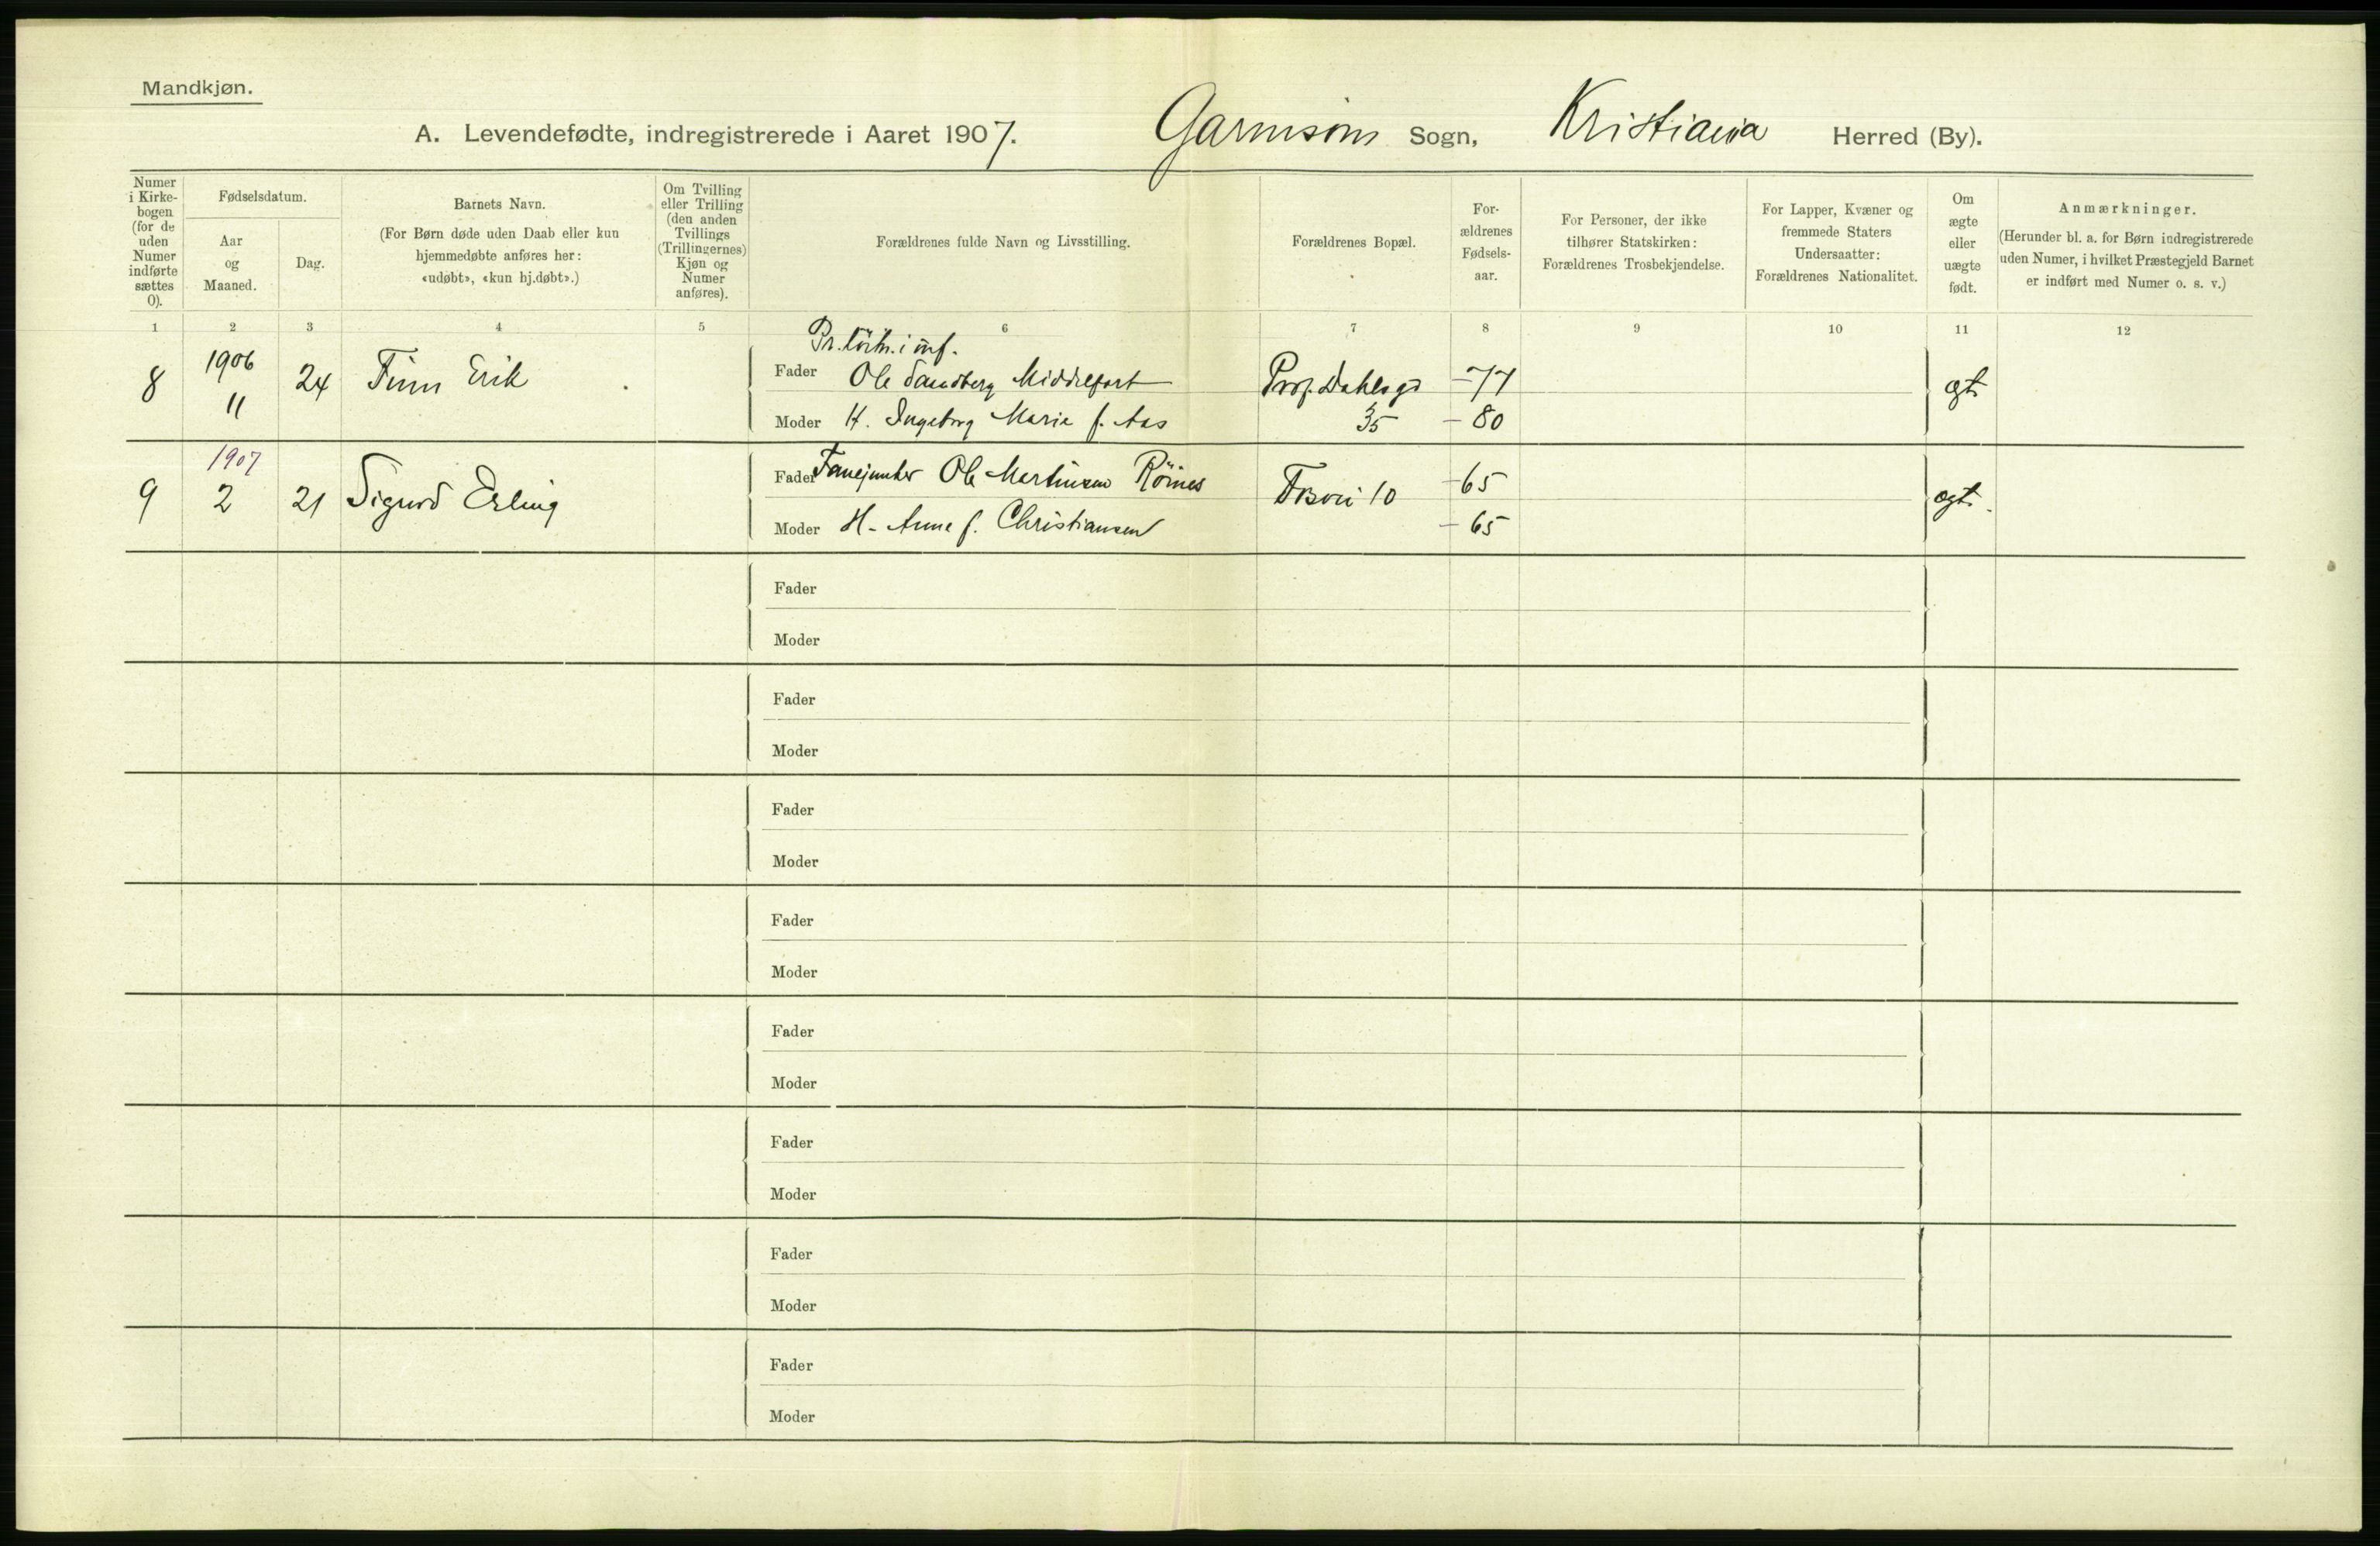 Mandkjøn.
A. Levendefødte, indregistrerede i Aaret 1907. Garnisons Sogn, Kristiania Herred (By).
Numer
i Kirke-
bogen
(for de
uden
Numer
indførte
sættes
0).
Fødselsdatum.
Aar
og
Maaned.
Dag.
Barnets Navn.
(For Børn døde uden Daab eller kun
hjemmedøbte anføres her:
«udøbt», «kun hj.døbt».)
Om Tvilling
eller Trilling
(den anden
Tvillings
(Trillingernes)
Kjøn og
Numer
anføres).
Forældrenes fulde Navn og Livsstilling.
Forældrenes Bopæl.
For-
ældrenes
Fødsels-
aar.
For Personer, der ikke
tilhører Statskirken:
Forældrenes Trosbekjendelse.
For Lapper, Kvæner og
fremmede Staters
Undersaatter:
Forældrenes Nationalitet.
Om
ægte
eller
uægte
født.
Anmærkninger.
(Herunder bl. a. for Børn indregistrerede
uden Numer, i hvilket Præstegjeld Barnet
er indført med Numer o. s. v.)
1 2 3 4 5 6 7 8 9 10 11 12
Pr. løitn. i inf.
8 1906 11 24 Finn Erik
Fader Ole Sandberg Middelfart Prof. Dahlsgd -77 ægt
Moder H. Ingeborg Marie f. Aas 35 -80
9 1907 2 21 Sigurd Erling
Fader Fanejunker Ole Martinsen Röines 10 -65 ægt.
Moder H. Anne f. Christiansen -65
Fader
Moder
Fader
Moder
Fader
Moder
Fader
Moder
Fader
Moder
Fader
Moder
Fader
Moder
Fader
Moder